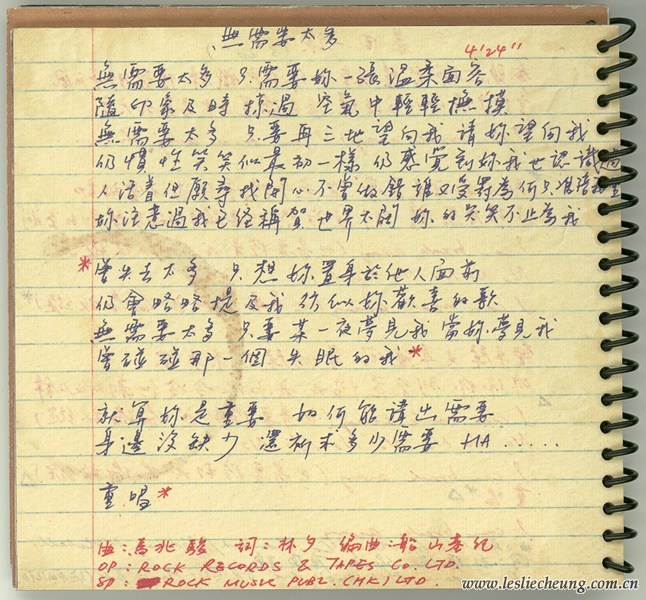 無需要太多
4'24"
無需要太多 只需要妳一張溫柔面容
隨印象及時掠過 空氣中輕輕撫摸
無需要太多 只要再三地望向我 請妳望向我
仍慣性笑笑似最初一樣 仍感覺到妳我也認識過
人活着但願尋找開心不曾做錯誰又受罪為何只准陪我
妳注意過我已經稱賀 世界太闊 妳的笑笑不止為我
*曾失去太多 只想妳置身於他人面前
仍會略略提及我 彷似妳歡喜的歌
無需要太多 只要某一夜夢見我 當妳夢見我
曾碰碰那一個失眠的我*
就算妳是重要 如何能講出需要
身邊沒缺少 還祈求多少需要 HA......
重唱*
曲:馬兆駿 詞:林夕 編曲:船山基紀
OP: ROCK RECORDS & TAPES CO. LTD.
SP: ROCK MUSIC PUBL. (HK) LTD.
www.lesliecheung.com.cn